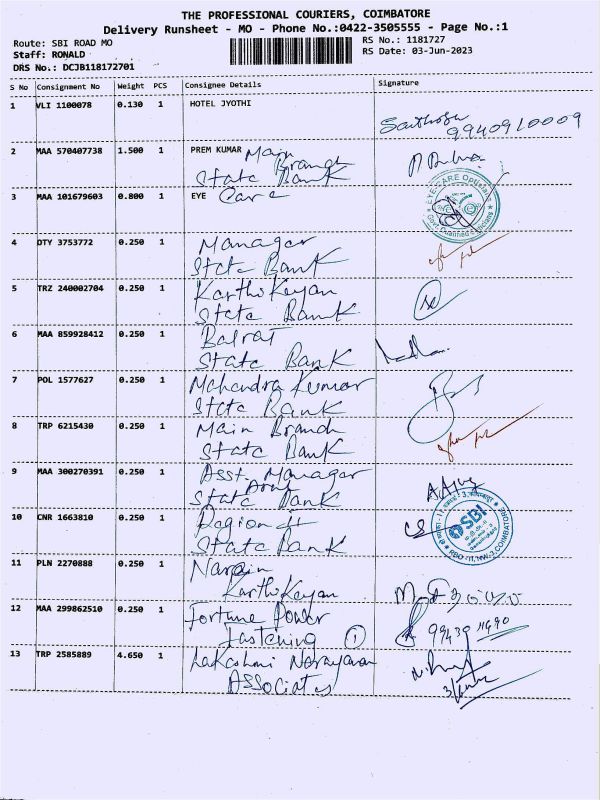 THE PROFESSIONAL COURIERS, COIMBATORE
Delivery Runsheet - MO - Phone No.:0422-3505555 - Page No.:1
Route: SBI ROAD MO
RS No.: 1181727
Staff: RONALD
RS Date: 03-Jun-2023
DRS No.: DCJB118172701
S No Consignment No Weight PCS Consignee Details Signature
1 VLI 1100078 0.130 1 HOTEL JYOTHI
Santhosh
9940910009
2 MAA 570407738 1.500 1 PREM KUMAR Main
Branch
State Bank
3 MAA 101679603 0.800 1 EYE Care
EYE CARE Opticians
4 DTY 3753772 0.250 1 Manager
State Bank
5 TRZ 240002704 0.250 1 Karthikeyan
State Bank
6 MAA 859928412 0.250 1 Balraj
State Bank
7 POL 1577627 0.250 1 Mahendra Kumar
State Bank
8 TRP 6215430 0.250 1 Main Branch
State Bank
9 MAA 300270391 0.250 1 Asst. Manager
State Bank
10 CNR 1663810 0.250 1 Region II
State Bank
SBI
COIMBATORE
11 PLN 2270888 0.250 1 Narain
Karthikeyan
12 MAA 299862510 0.250 1 Fortune Power
Fastening 1
99439 11690
13 TRP 2585889 4.650 1 Lakshmi Narayanan
Associates